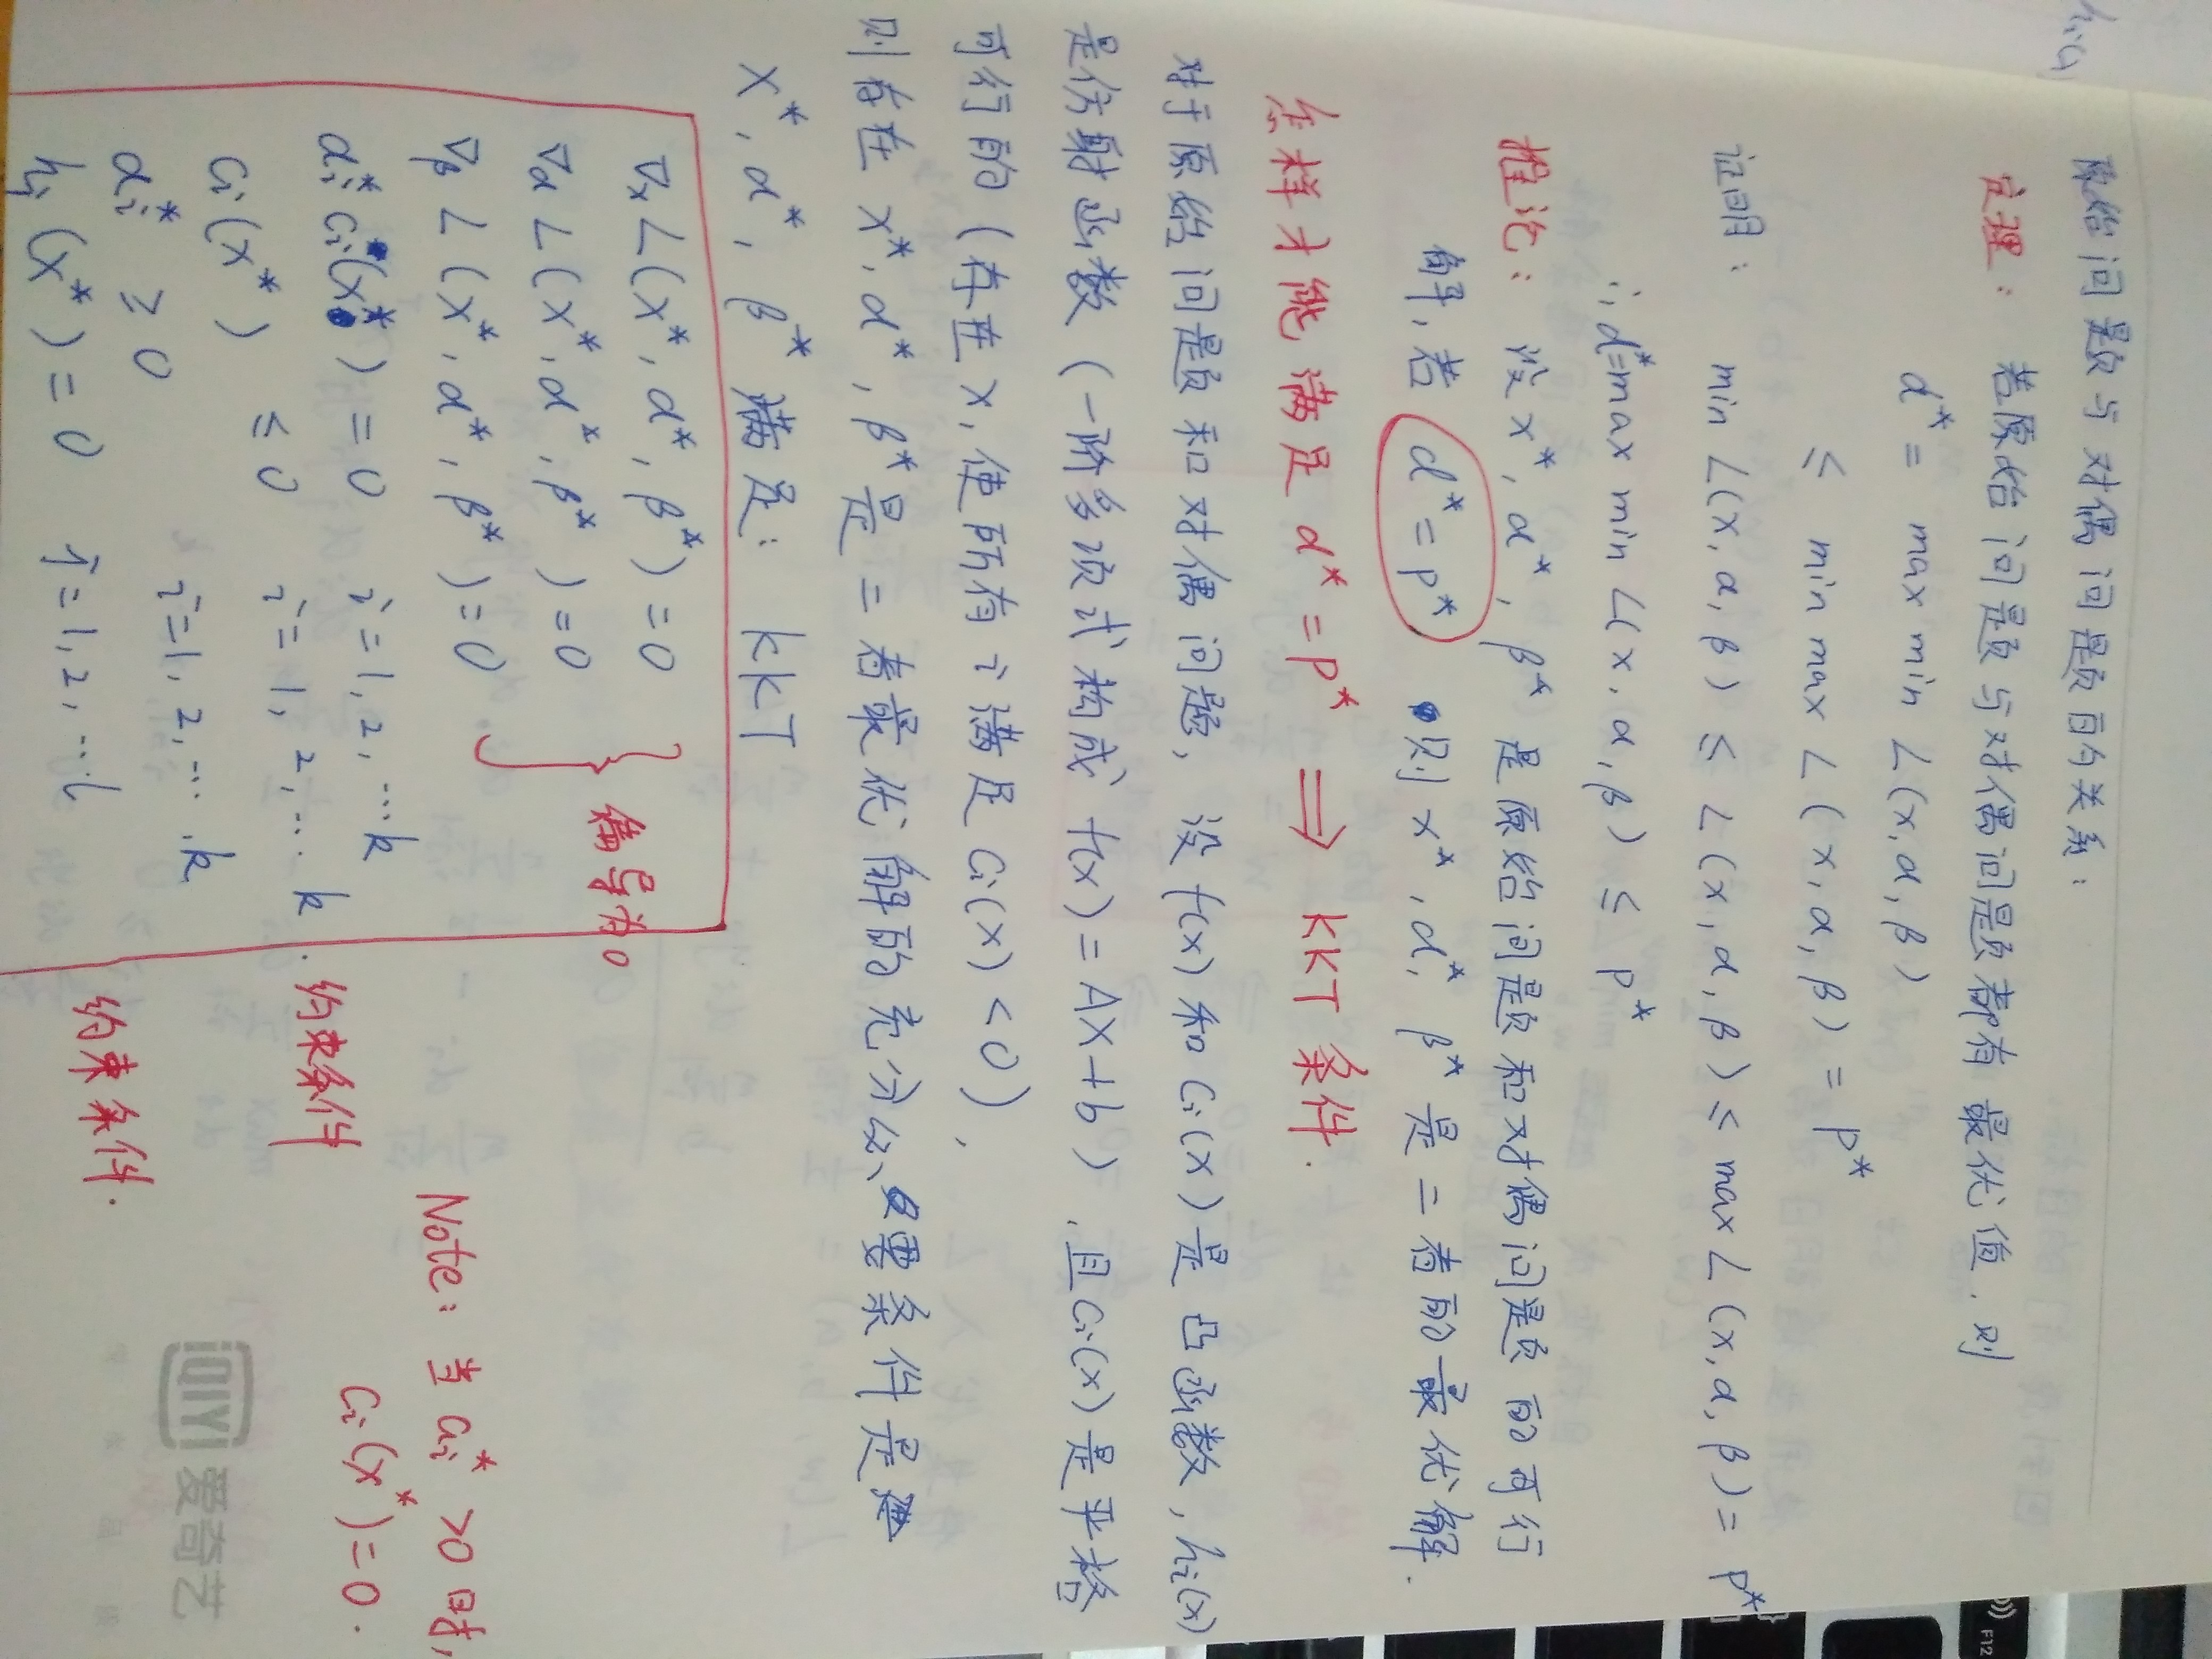 原始问题与对偶问题的关系：
定理：若原始问题与对偶问题都有最优值，则
d* = max min L(x, α, β)
≤ min max L(x, α, β) = p*
证明： min L(x, α, β) ≤ L(x, α, β) ≤ max L(x, α, β) = p*
∴ d* = max min L(x, α, β) ≤ p*
推论：设 x*, α*, β* 是原始问题和对偶问题的可行
解，若 d* = p* 则 x*, α*, β* 是二者的最优解.
怎样才能满足 d* = p* ⟹ KKT 条件.
对于原始问题和对偶问题，设 f(x) 和 Ci(x) 是凸函数，hi(x)
是仿射函数（一阶多项式构成 f(x) = AX + b），且Ci(x)是严格
可行的（存在 x，使所有 i 满足 Ci(x) < 0），
则存在 x*, α*, β* 是二者最优解的充分必要条件是
x*, α*, β* 满足： KKT
∇x L(x*, α*, β*) = 0
∇α L(x*, α*, β*) = 0
∇β L(x*, α*, β*) = 0
偏导为0
αi* Ci(x*) = 0 i = 1, 2, … k
Ci(x*) ≤ 0 i = 1, 2, … k. 约束条件
αi* ≥ 0 i = 1, 2, … k
hj(x*) = 0 j = 1, 2, … l 约束条件.
Note：当 αi* > 0 时，
Ci(x*) = 0.
iQIYI 爱奇艺
F12